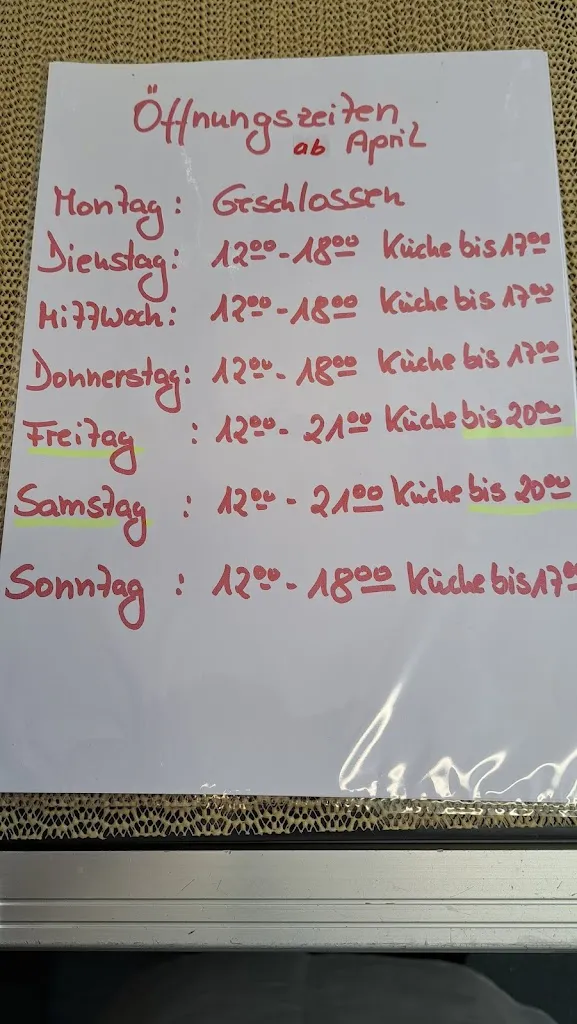 Öffnungszeiten
ab April
Montag: Geschlossen
Dienstag: 12⁰⁰-18⁰⁰ Küche bis 17⁰⁰
Mittwoch: 12⁰⁰-18⁰⁰ Küche bis 17⁰⁰
Donnerstag: 12⁰⁰-18⁰⁰ Küche bis 17⁰⁰
Freitag : 12⁰⁰-21⁰⁰ Küche bis 20⁰⁰
Samstag : 12⁰⁰-21⁰⁰ Küche bis 20⁰⁰
Sonntag : 12⁰⁰-18⁰⁰ Küche bis 17⁰⁰